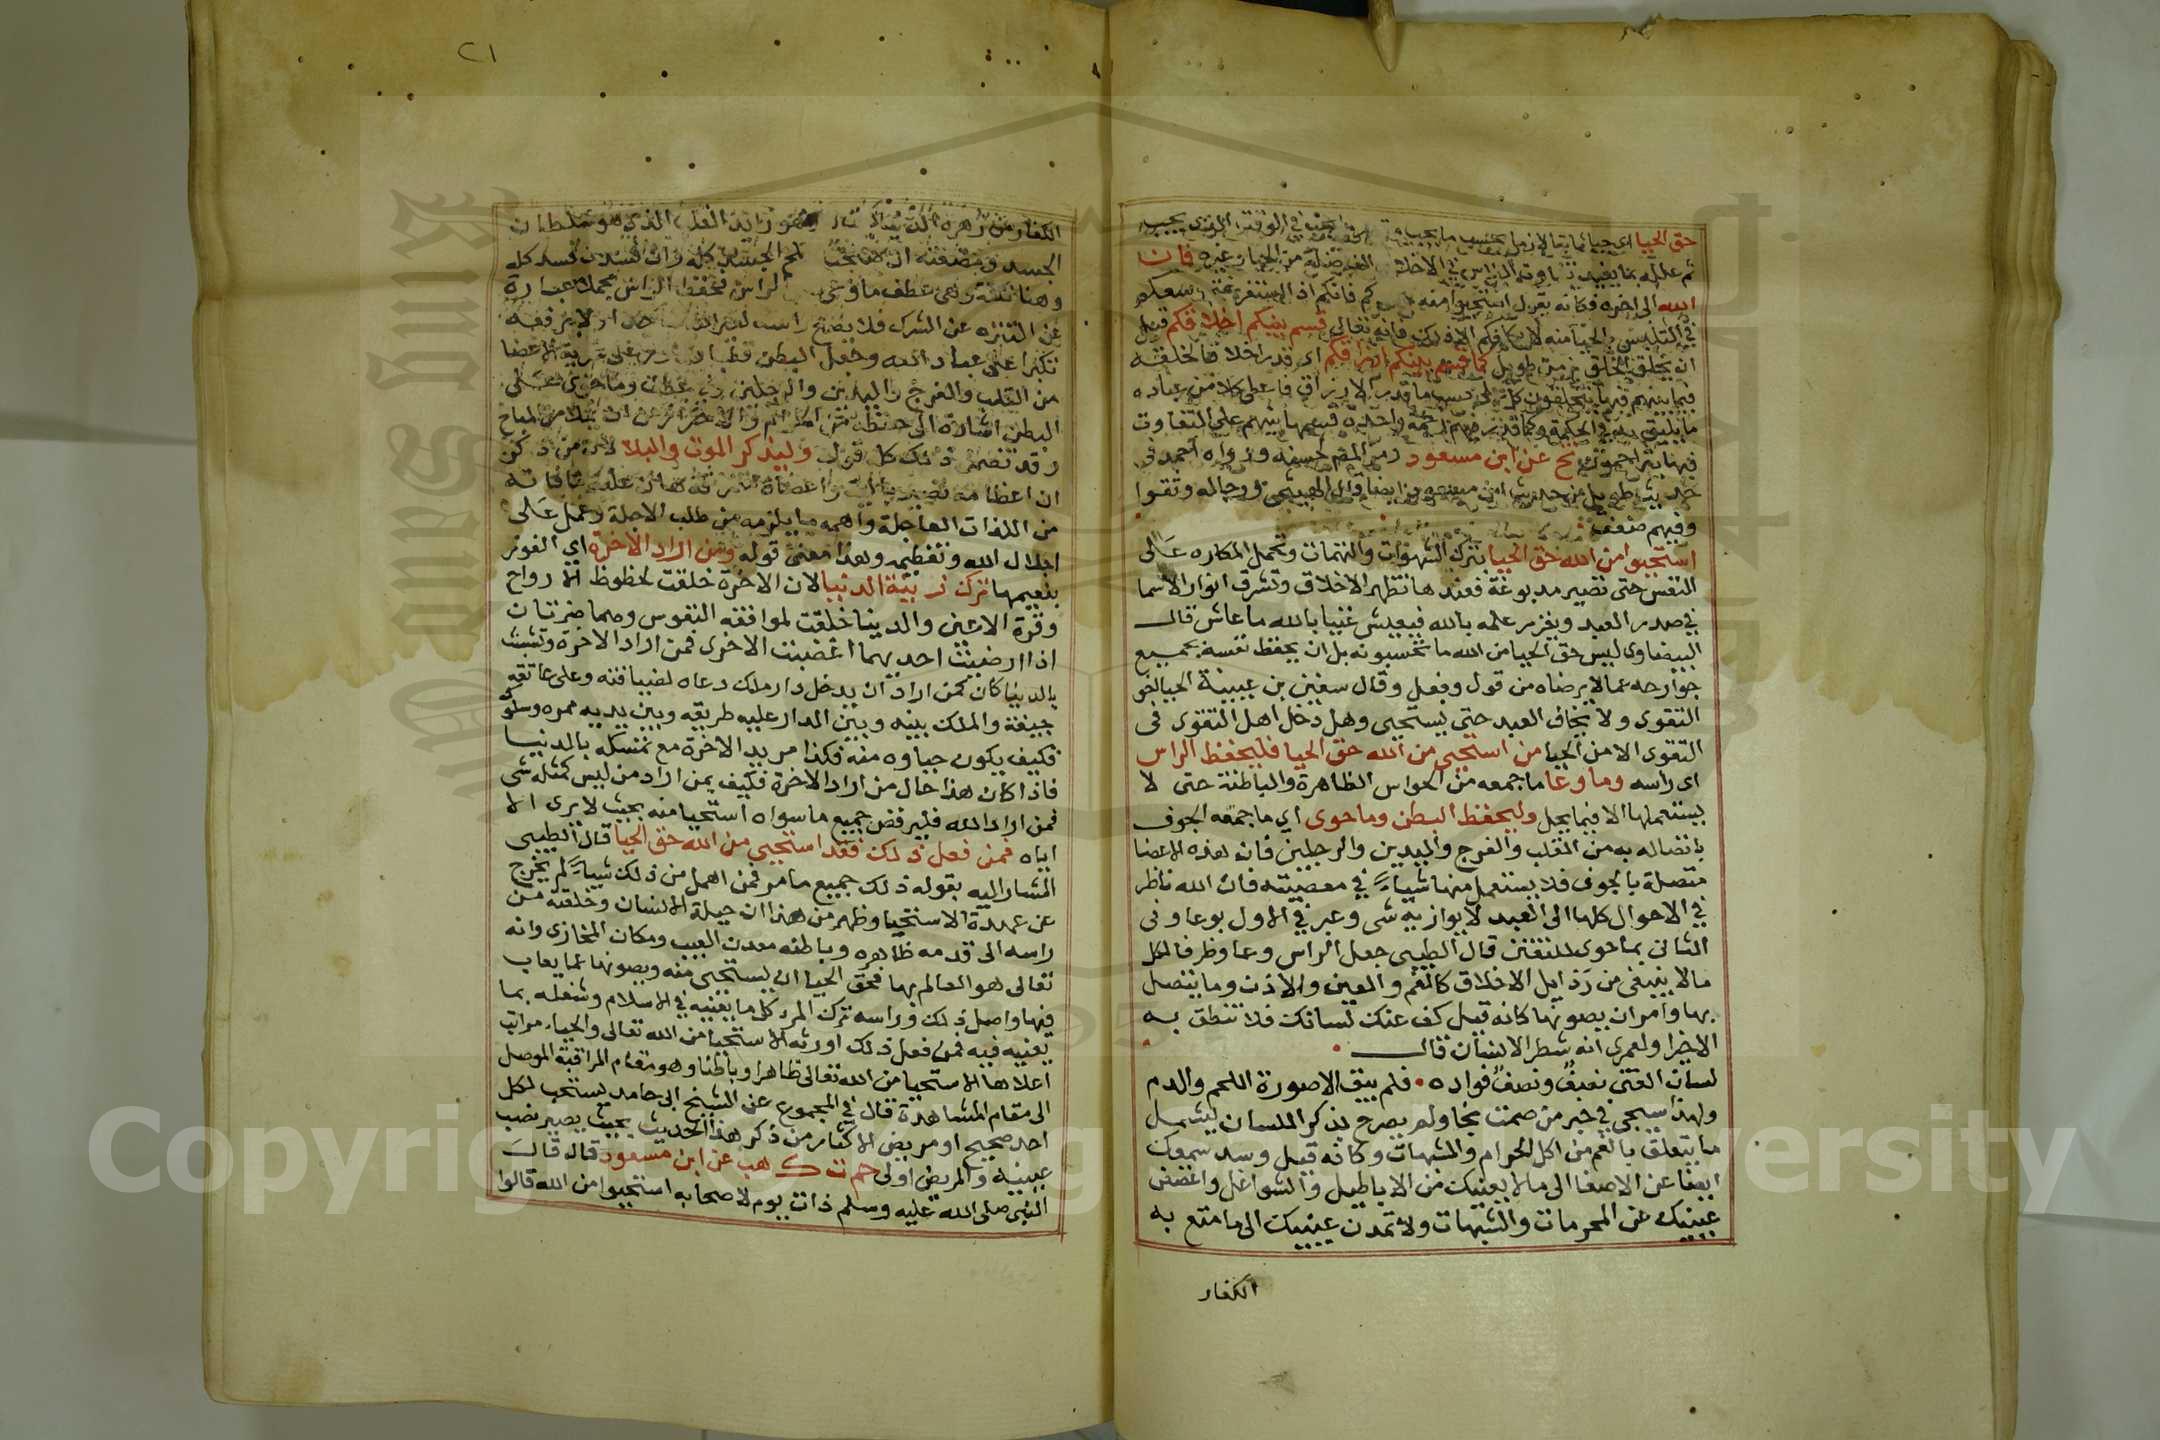 حق الحيا اي حيا ثابتا لازما بحسب ما يجب
ثم علله بما يفيد في الاخلاق من الحيا وغيره فان
الله الى اخره فكانه يقول استحيوا منه
في التلبس بالحيا منه لان تعالى قسم بينكم اخلاقكم قبل
ان يخلق الخلق بزمن طويل كما قسم بينكم ارزاقكم اي قدر اخلاقا لخلقه
فيما بينهم فيها يتخلقون كل على حسب ما قدر كالارزاق فاعطى كلا من عباده
ما يليق به في الحكمة وكما قدر رحمة واحدة قسمها بينهم على التفاوت
فيها يتراحمون تخ عن ابن مسعود رمز المصـ لحسنه ورواه احمد في
حديث طويل من حديث ابن مسعود ايضا قال الهيثمي ورجاله وثقوا
وفيهم ضعف
استحيوا من الله حق الحيا بترك الشهوات والنهمات وتحمل المكاره على
النفس حتى تصير مدبوغة فعندها تظهر الاخلاق وتشرق انوار الاسما
في صدر العبد ويغزر علمه بالله فيعيش غنيا بالله ما عاش قال
البيضاوي ليس حق الحيا من الله ما تحسبونه بل ان يحفظ نفسه بجميع
جوارحه عما لا يرضاه من قول وفعل وقال سفين بن عيينة الحيا اخو
التقوى ولا يخاف العبد حتى يستحيي وهل دخل اهل التقوى في
التقوى الا من الحيا من استحيي من الله حق الحيا فليحفظ الراس
اي راسه وما وعا ما جمعه من الحواس الظاهرة والباطنة حتى لا
يستعملها الا فيما يحل وليحفظ البطن وما حوى اي ما جمعه الجوف
باتصاله به من القلب والفرج واليدين والرجلين فان هذه الاعضا
متصلة بالجوف فلا يستعمل منها شيا في معصيته فان الله ناظر
في الاحوال كلها الى العبد لا يوازيه شي وعبر في الاول بوعا وفي
الثاني بما حوى للتفنن قال الطيبي جعل الراس وعا وظرفا لكل
ما لا ينبغي من رذايل الاخلاق كالفم والعين والاذن وما يتصل
بها وامر ان يصونها كانه قيل كف عنك لسانك فلا تنطق به
الا خيرا ولعمري انه شطر الانسان قال
لسان الفتى نصف ونصف فواده فلم يبق الا صورة اللحم والدم
ولهذا سيجي في خبر من صمت نجا ولم يصرح بذكر اللسان ليشمل
ما يتعلق بالفم من اكل الحرام والشبهات وكانه قيل وسد سمعك
ايضا عن الاصغا الى ما لا يعنيك من الاباطيل والشواغل واغضض
عينيك عن المحرمات والشبهات ولا تمدن عينيك الى ما متع به
الكفار
٢١
الكفار من زهرة الدنيا
الجسد ومضغته ان صلحت صلح الجسد كله وان فسدت فسد كله
وهنا نكتة وهي عطف ما وعى الراس فحفظ الراس مجملا عبارة
عن التنزه عن الشرك فلا يضع راسه لغير الله ولا يرفعه
تكبرا على عباد الله وجعل البطن قطبا على سرية الاعضا
من القلب والفرج واليدين والرجلين وفي عطف وما حوى على
البطن اشارة الى حفظه من الحرام والاحتراز عن ان يملا من المباح
وقد تضمن ذلك كله قوله وليذكر الموت والبلا لان من ذكر
ان عظامه تصير بالية واعضاه متمزقة هان عليه ما فاته
من اللذات العاجلة واهمه ما يلزمه من طلب الاجلة وعمل على
اجلال الله وتعظيمه وهذا معنى قوله ومن اراد الاخرة اي الفوز
بنعيمها ترك زينة الدنيا لان الاخرة خلقت لحظوظ الارواح
وقرة الاعين والدنيا خلقت لموافقة النفوس وهما ضرتان
اذا ارضيت احديهما اغضبت الاخرى فمن اراد الاخرة وتشبث
بالدنيا كان كمن اراد ان يدخل دار ملك دعاه لضيافته وعلى عاتقه
جيفة والملك بينه وبين الدار عليه طريقه وبين يديه ممره وسلوكه
فكيف يكون حياوه منه فكذا مريد الاخرة مع تمسكه بالدنيا
فاذا كان هذا حال من اراد الاخرة فكيف بمن اراد من ليس كمثله شي
فمن اراد الله فليرفض جميع ما سواه استحيا منه بحيث لا يرى الا
اياه فمن فعل ذلك فقد استحيي من الله حق الحيا قال الطيبي
المشار اليه بقوله ذلك جميع ما مر فمن اهمل من ذلك شيا لم يخرج
عن عهدة الاستحيا وظهر من هذا ان جبلة الانسان وخلقته من
راسه الى قدمه ظاهره وباطنه معدن العيب ومكان المخازي وانه
تعالى هو العالم بها فحق الحيا ان يستحيي منه ويصونها عما يعاب
فيها واصل ذلك وراسه ترك المرء كل ما يعنيه في الاسلام وشغله بما
يعنيه فيه فمن فعل ذلك اورثه الاستحيا من الله تعالى والحياء مراتب
اعلاها الاستحيا من الله تعالى ظاهرا وباطنا وهو مقام المراقبة الموصل
الى مقام المشاهدة قال في المجموع عن الشيخ ابي حامد يستحب لكل
احد صحيح او مريض الاكثار من ذكر هذا الحديث بحيث يصير نصب
عينيه والمريض اولى حم ت ك هب عن ابن مسعود قال قال
النبي صلى الله عليه وسلم ذات يوم لاصحابه استحيوا من الله قالوا
King Saud University
Copyright © King Saud University